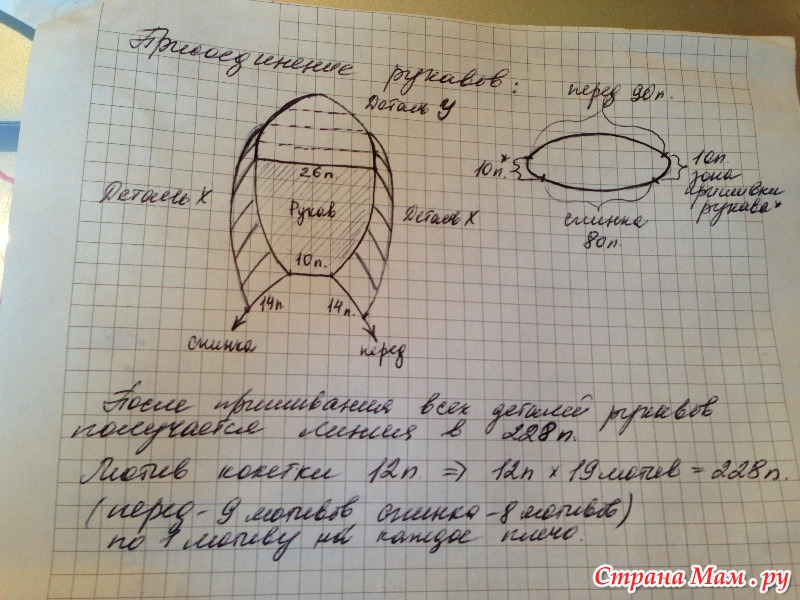 Присоединение рукавов:
Деталь У
26п.
Рукав
Деталь Х
Деталь Х
10п.
14п.
14п.
спинка
перед
перед 90п.
10п.*
10п.
зона
пришивки
рукава*
спинка
80п.
После пришивания всех деталей рукавов
получается линия в 228п.
Мотив кокетки 12п => 12п × 19 мотив = 228п.
(перед - 9 мотивов спинка - 8 мотивов)
по 1 мотиву на каждое плечо.
Страна Мам.ру